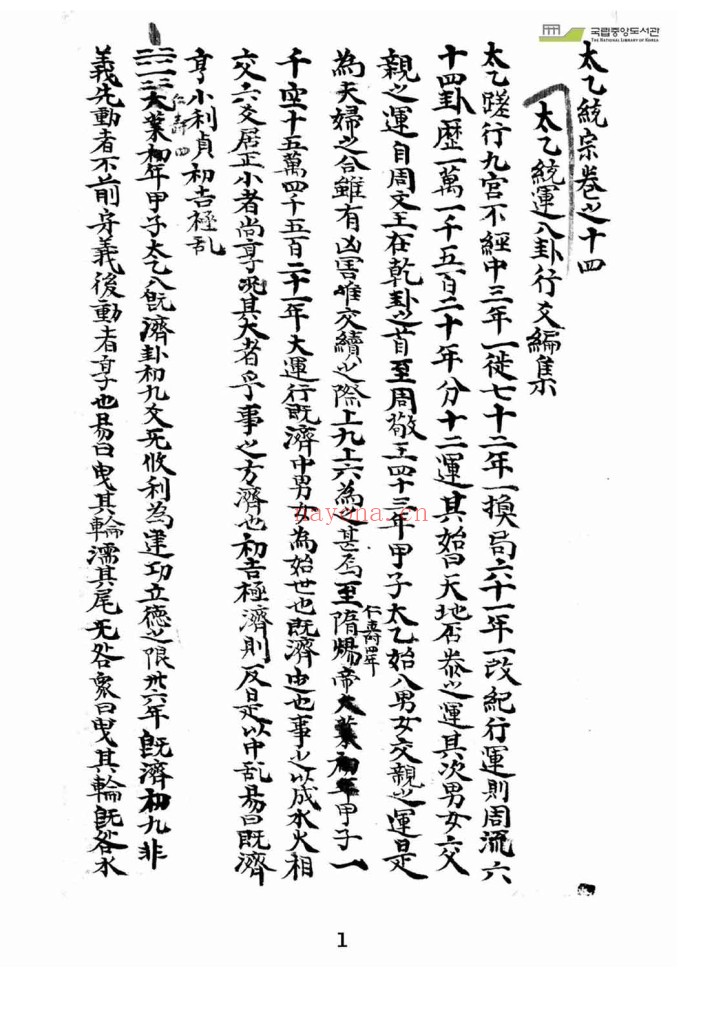 국립중앙도서관
THE NATIONAL LIBRARY OF KOREA
太乙統宗卷之十四
太乙統運八卦行爻編集
太乙蹉行九宮不經中三年一徙七十二年一換局六十一年一改紀行運則周流六
十四卦歷一萬一千五百二十年分十二運其始曰天地否泰之運其次男女交
親之運自周文王在乾卦之首至周敬王四十三年甲子太乙始入男女交親之運是
為夫婦之合雖有凶害唯交續之際上九上六為之甚焉至隋煬帝大業初年甲子一
仁壽四年
千空十五萬四千五百二十一年大運行既濟中男女為始世也既濟定也事之以成水火相
交六爻居正小者尚亨况其大者乎事之方濟也初吉極濟則反是以中乱易曰既濟
亨小利貞初吉極乱
仁壽四
大業初年甲子太乙入既濟卦初九爻无攸利為建功立德之限卅六年既濟初九非
義先動者不前身義後動者亨也易曰曳其輪濡其尾无咎象曰曳其輪既咎水
nayona.cn
1